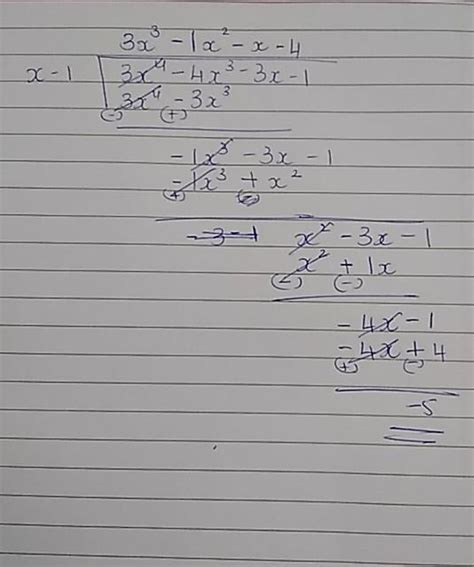 3x³ - 1x² - x - 4
x - 1 3x⁴ - 4x³ - 3x - 1
3x⁴ - 3x³
(-) (+)
-1x³ - 3x - 1
-1x³ + x²
(+) (-)
-3-1 x² - 3x - 1
x² + 1x
(-) (-)
-4x - 1
-4x + 4
(+) (-)
-5